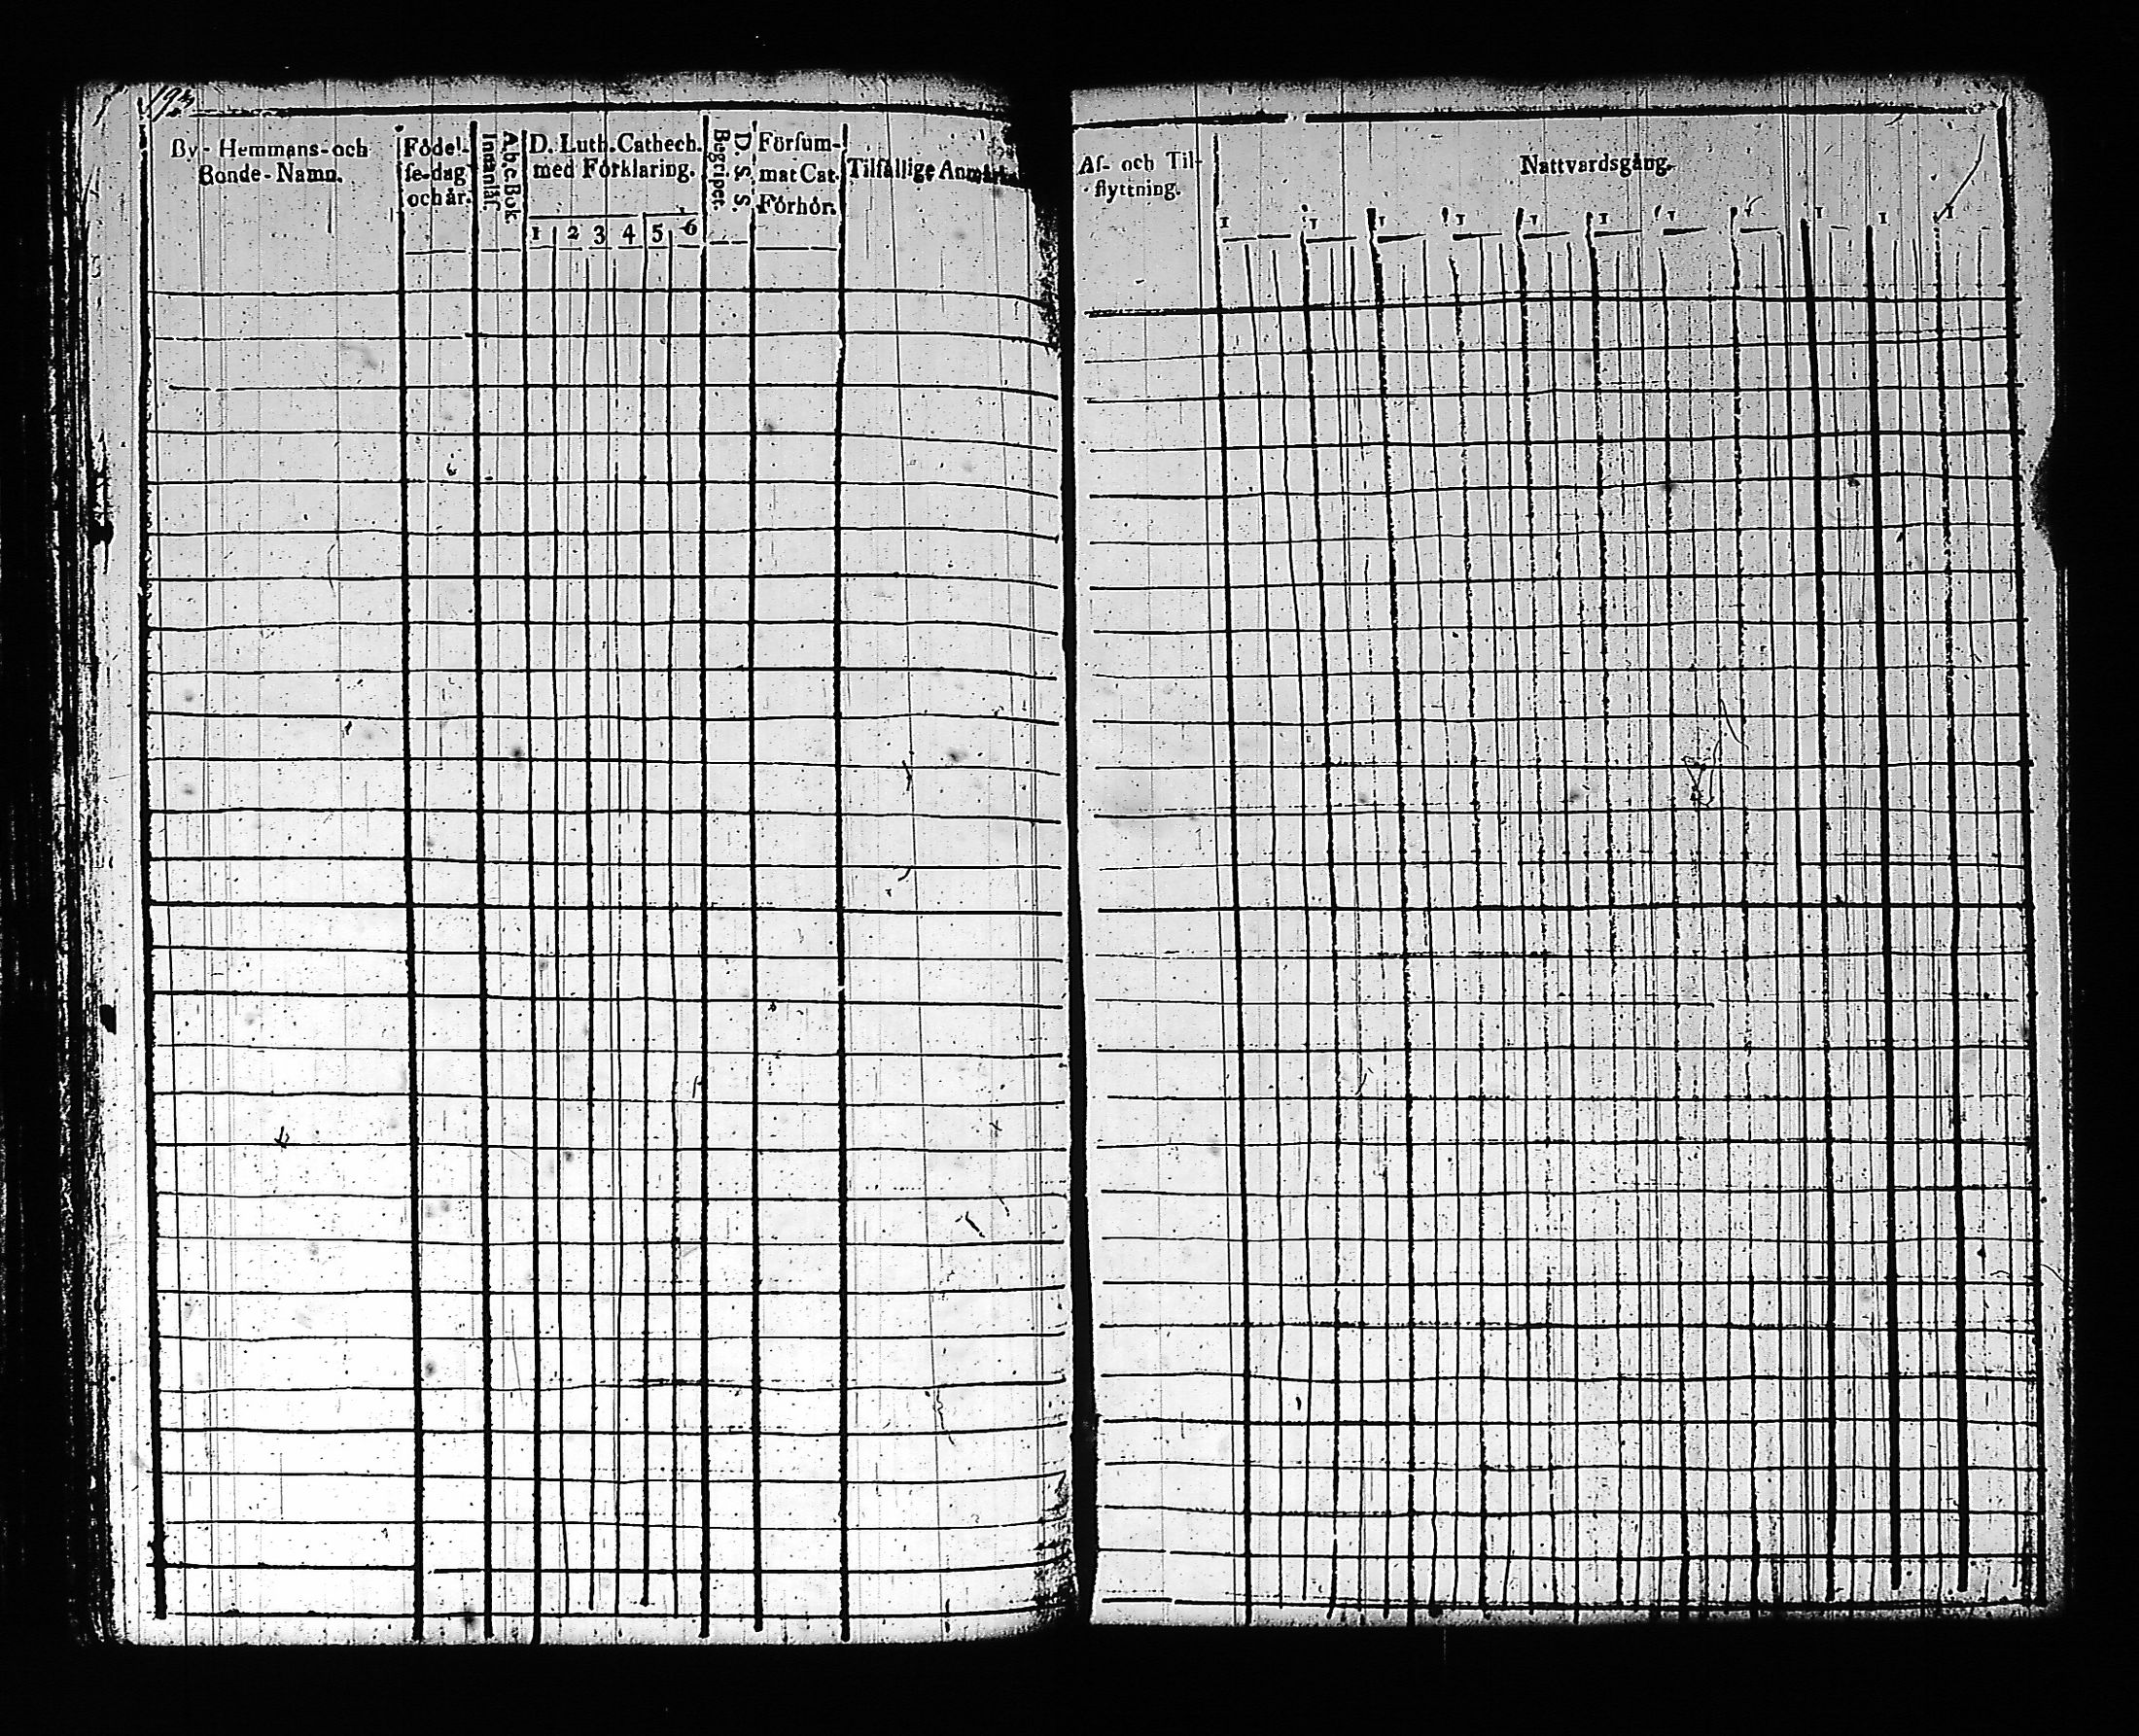 193
By- Hemmans- och
Bonde-Namn.
Födel-
se-dag
och år.
A.b.c Bok
Innanläs.
D. Luth. Cathech.
med Förklaring.
1 2 3 4 5 6
D. S. S.
Begripet.
Försum-
mat Cat.
Förhör.
Tilfällige
Af- och Til-
flyttning.
Nattvardsgång.
1 1 1 1 1 1 1 1 1 1 1